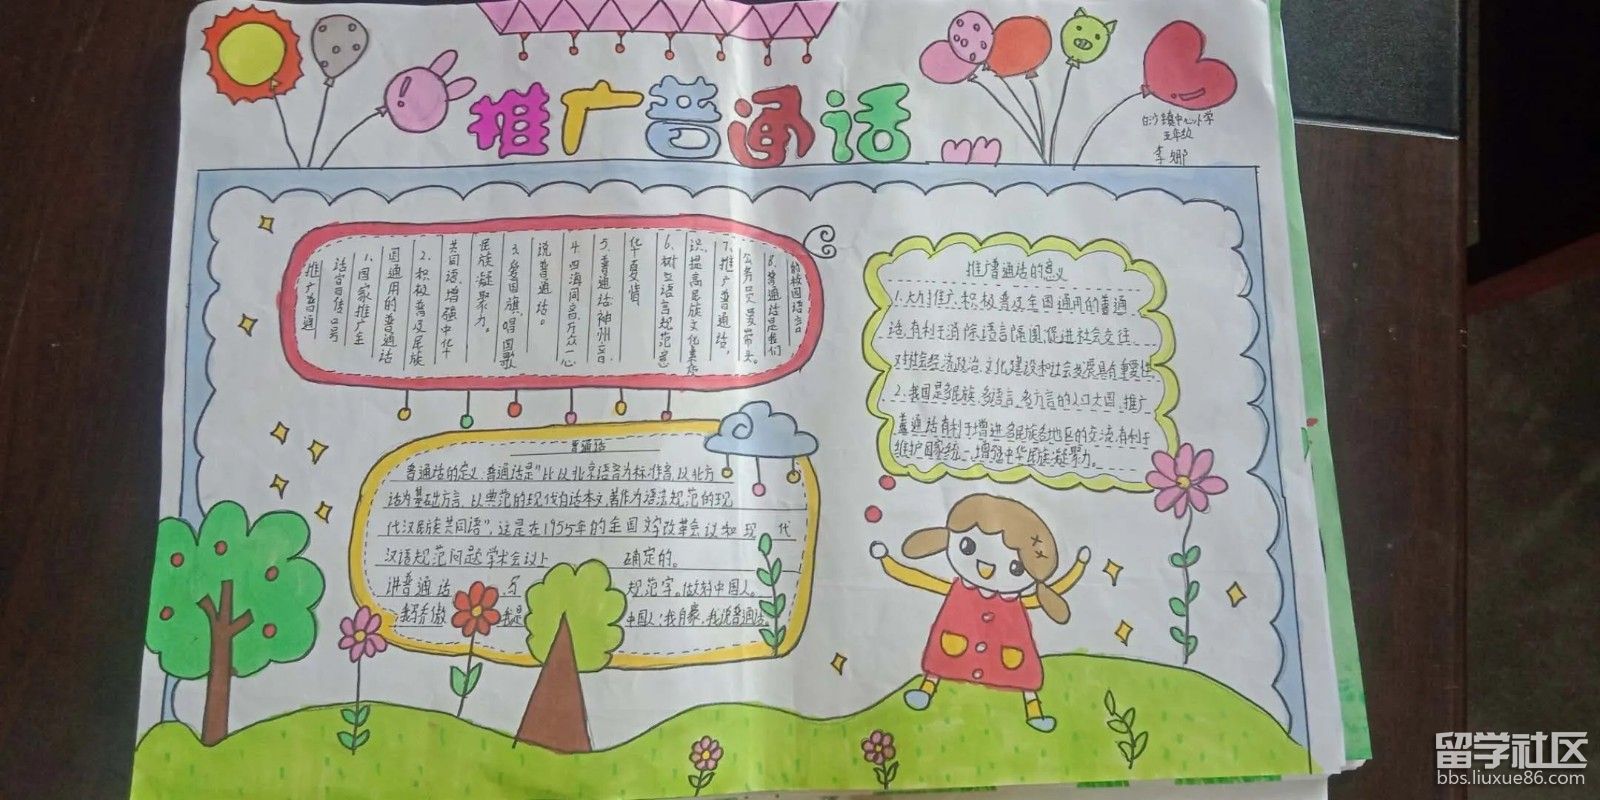 推广普通话
白沙镇中心小学
五年级
李娜
推广普通
话宣传口号
1、国家推广全
国通用的普通话
2、积极普及民族
共同语,增强中华
民族凝聚力。
3、爱国旗,唱国歌
说普通话。
4、四海同音,万众一心
5、普通话:神州音,
华夏情
6、树立语言规范意
识,提高民族文化素质
7、推广普通话,
公务员要带头。
8、普通话是我们
的校园语言。
推广普通话的意义
1、大力推广、积极普及全国通用的普通
话,有利于消除语言隔阂,促进社会交往
对社会经济、政治、文化建设和社会发展具有重要性
2、我国是多民族、多语言、多方言的人口大国,推广
普通话有利于增进各民族各地区的交流,有利于
维护国家统一,增强中华民族凝聚力。
普通话
普通话的定义:普通话是"以北京语音为标准音,以北方
话为基础方言,以典范的现代白话文著作为语法规范的现
代汉民族共同语",这是在1955年的全国文字改革会议和现代
汉语规范问题学术会议上 确定的。
讲普通话 写 规范字。做好中国人。
我骄傲 我是 中国人;我自豪,我说普通话
留学社区
bbs.liuxue86.com